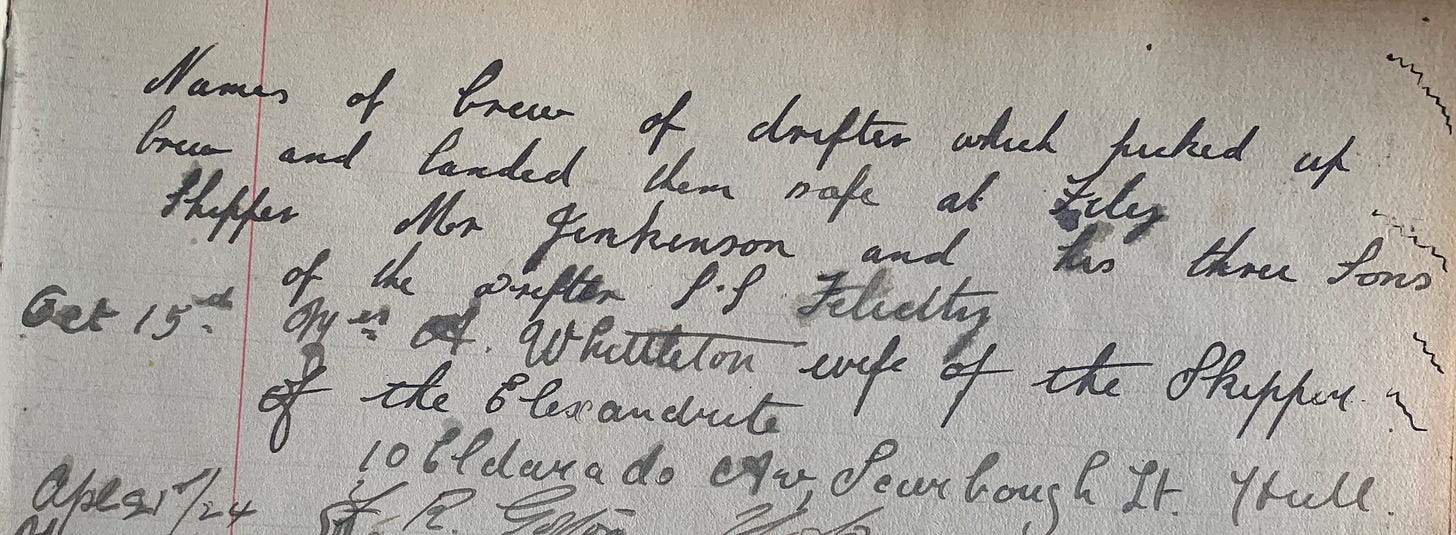 Names of Crew of drifter which picked up
Crew and landed them safe at Filey
Skipper Mr Jenkinson and his three Sons
of the drifter S.S Felicity
Oct 15th Mrs A. Whittleton wife of the Skipper
of the Elexandrite
10 Eldarado Av, Scarbough St. Hull.
Apl 21st/24 R.